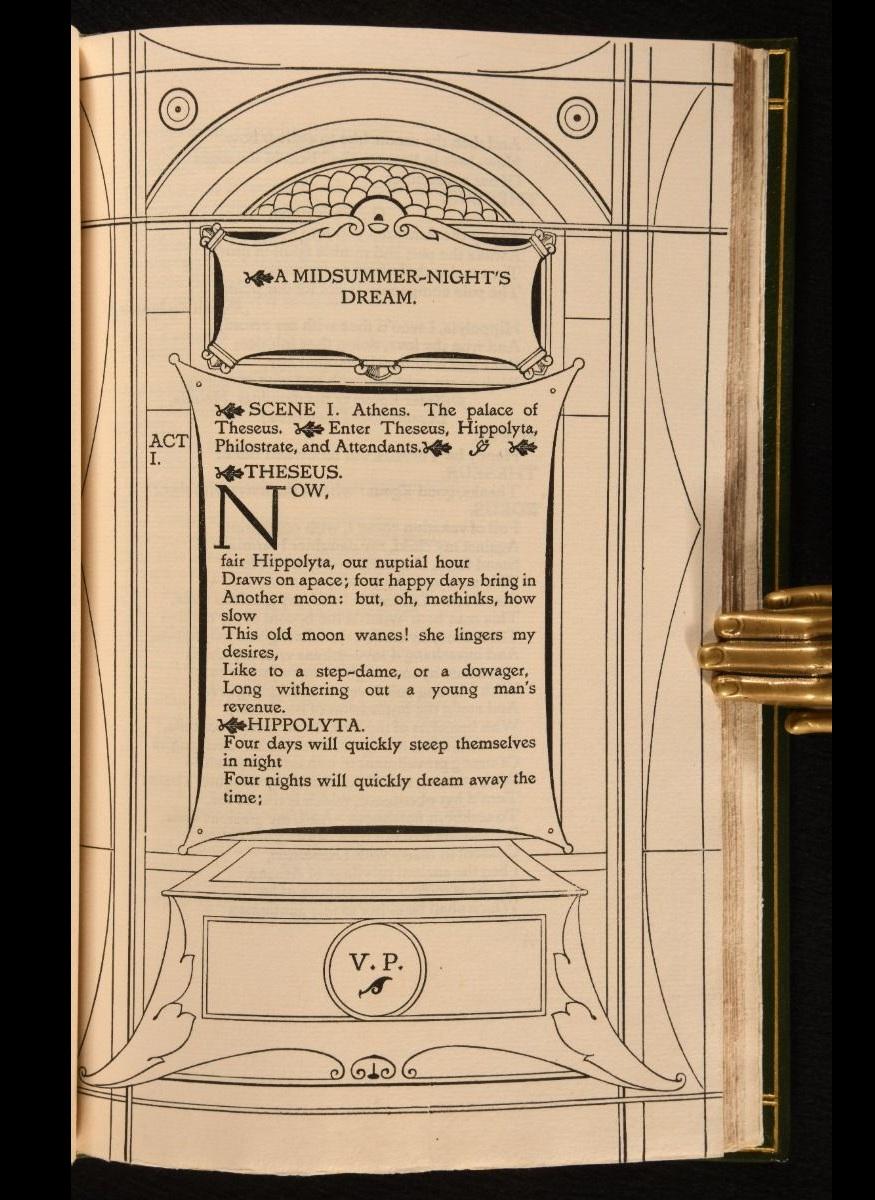 A MIDSUMMER-NIGHT'S
DREAM.
SCENE I. Athens. The palace of
Theseus. Enter Theseus, Hippolyta,
Philostrate, and Attendants.
ACT
I.
THESEUS.
NOW,
fair Hippolyta, our nuptial hour
Draws on apace; four happy days bring in
Another moon: but, oh, methinks, how
slow
This old moon wanes! she lingers my
desires,
Like to a step-dame, or a dowager,
Long withering out a young man's
revenue.
HIPPOLYTA.
Four days will quickly steep themselves
in night
Four nights will quickly dream away the
time;
V. P.